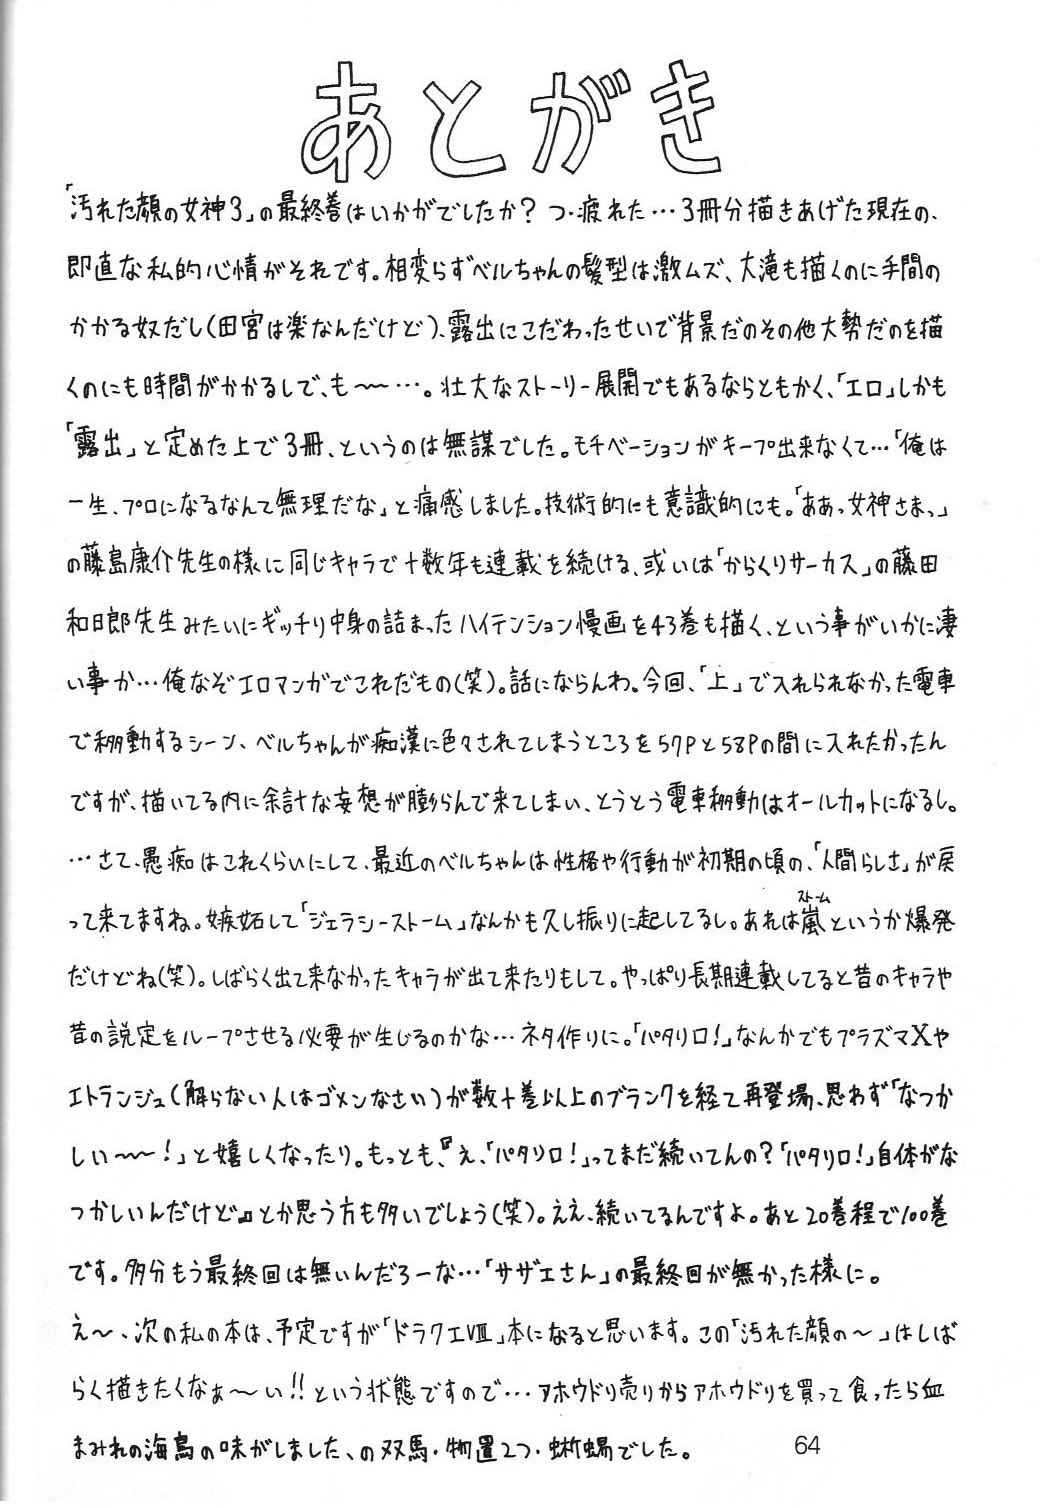 あとがき
「汚れた顔の女神3」の最終巻はいかがでしたか? つ・疲れた…3冊分描きあげた現在の、
即直な私的心情がそれです。相変らずベルちゃんの髪型は激ムズ、大滝も描くのに手間の
かかる奴だし(田宮は楽なんだけど)、露出にこだわったせいで背景だのその他大勢だのを描
くのにも時間がかかるしで、も〜〜…。壮大なストーリー展開でもあるならともかく、「エロ」しかも
「露出」と定めた上で3冊、というのは無謀でした。モチベーションがキープ出来なくて…「俺は
一生、プロになるなんて無理だな」と痛感しました。技術的にも意識的にも。「ああっ女神さまっ」
の藤島康介先生の様に同じキャラで十数年も連載を続ける、或いは「からくりサーカス」の藤田
和日郎先生みたいにギッチリ中身の詰まったハイテンション漫画を43巻も描く、という事がいかに凄
い事か…俺なぞエロマンガでこれだもの(笑)。話にならんわ。今回、「上」で入れられなかった電車
で移動するシーン、ベルちゃんが痴漢に色々されてしまうところを57Pと58Pの間に入れたかったん
ですが、描いてる内に余計な妄想が膨らんで来てしまい、とうとう電車移動はオールカットになるし。
…さて、愚痴はこれくらいにして、最近のベルちゃんは性格や行動が初期の頃の、「人間らしさ」が戻
って来てますね。嫉妬して「ジェラシーストーム」なんかも久し振りに起してるし。あれは嵐(ストーム)というか爆発
だけどね(笑)。しばらく出て来なかったキャラが出て来たりもして。やっぱり長期連載してると昔のキャラや
昔の説定をループさせる必要が生じるのかな…ネタ作りに。「パタリロ!」なんかでもプラズマXや
エトランジュ(解らない人はゴメンなさい)が数十巻以上のブランクを経て再登場、思わず「なつか
しい〜〜!」と嬉しくなったり。もっとも、『え、「パタリロ!」ってまだ続いてんの?「パタリロ!」自体がな
つかしいんだけど』とか思う方も多いでしょう(笑)。ええ、続いてるんですよ。あと20巻程で100巻
です。多分もう最終回は無いんだろーな…「サザエさん」の最終回が無かった様に。
え〜、次の私の本は、予定ですが「ドラクエⅧ」本になると思います。この「汚れた顔の〜」はしば
らく描きたくなぁ〜い!!という状態ですので…アホウドリ売りからアホウドリを買って食ったら血
まみれの海鳥の味がしました、の双馬・物置2つ・蜥蜴でした。
64